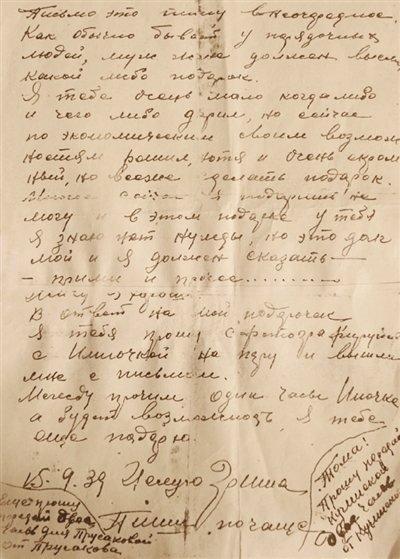 Письмо это пишу внеочередное.
Как обычно бывает у порядочных
людей, муж жене должен
какой либо подарок.
Я тебе очень мало когда либо
и чего либо дарил, но сейчас
по экономическим своим возмож
ностям решил, хотя и очень скром
ный, но все же сделать подарок.
я подарить не
могу и в этом подарке у тебя
я знаю нет нужды, но это долг
мой и я должен сказать —
— прими и прочее..........
В ответ на мой подарочек
я тебя прошу сфотографируйся
с Инночкой на пару и вышли
мне с письмом.
Между прочим одни часы Иночке
а будет возможность я тебе
еще подарю.
15.9.39 Целую Гриша
Пиши почаще
Еще прошу
передай двое
часы для Прусаковой
от Прусакова.
Тома!
Прошу передай
часов
от